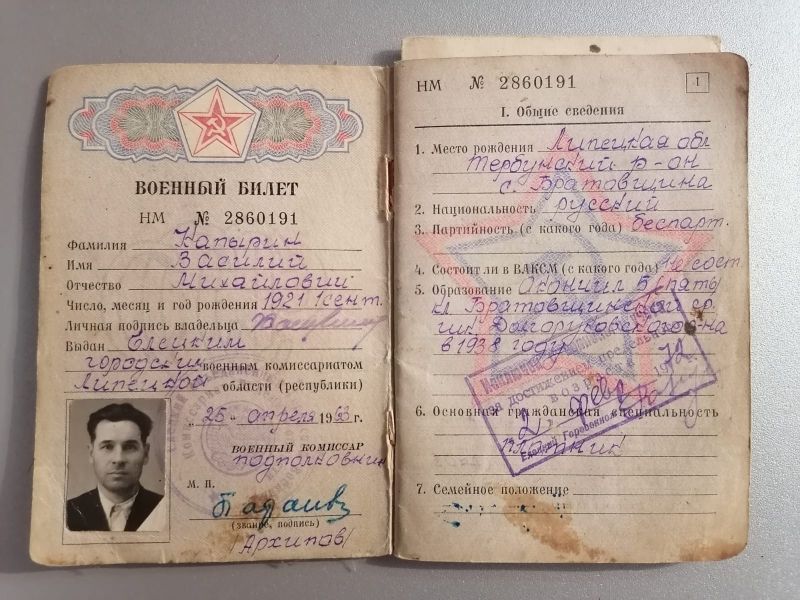 ВОЕННЫЙ БИЛЕТ
НМ № 2860191
Фамилия Капырин
Имя Василий
Отчество Михайлович
Число, месяц и год рождения 1921 1 сент.
Личная подпись владельца
Выдан Елецким
городским военным комиссариатом
Липецкой области (республики)
"25" апреля 1963 г.
ВОЕННЫЙ КОМИССАР
подполковник
М. П.
(звание, подпись)
/Архипов/
НМ № 2860191
1
I. Общие сведения
1. Место рождения Липецкая обл
Тербунский р-он
с. Братовщина
2. Национальность русский
3. Партийность (с какого года) беспарт.
4. Состоит ли в ВЛКСМ (с какого года) не сост
5. Образование Окончил 5
кл Братовщинской
Долгоруковского р-на
в 1938 году
за достижением предельного
возраста
2 1972
6. Основная гражданская специальность
плотник
7. Семейное положение